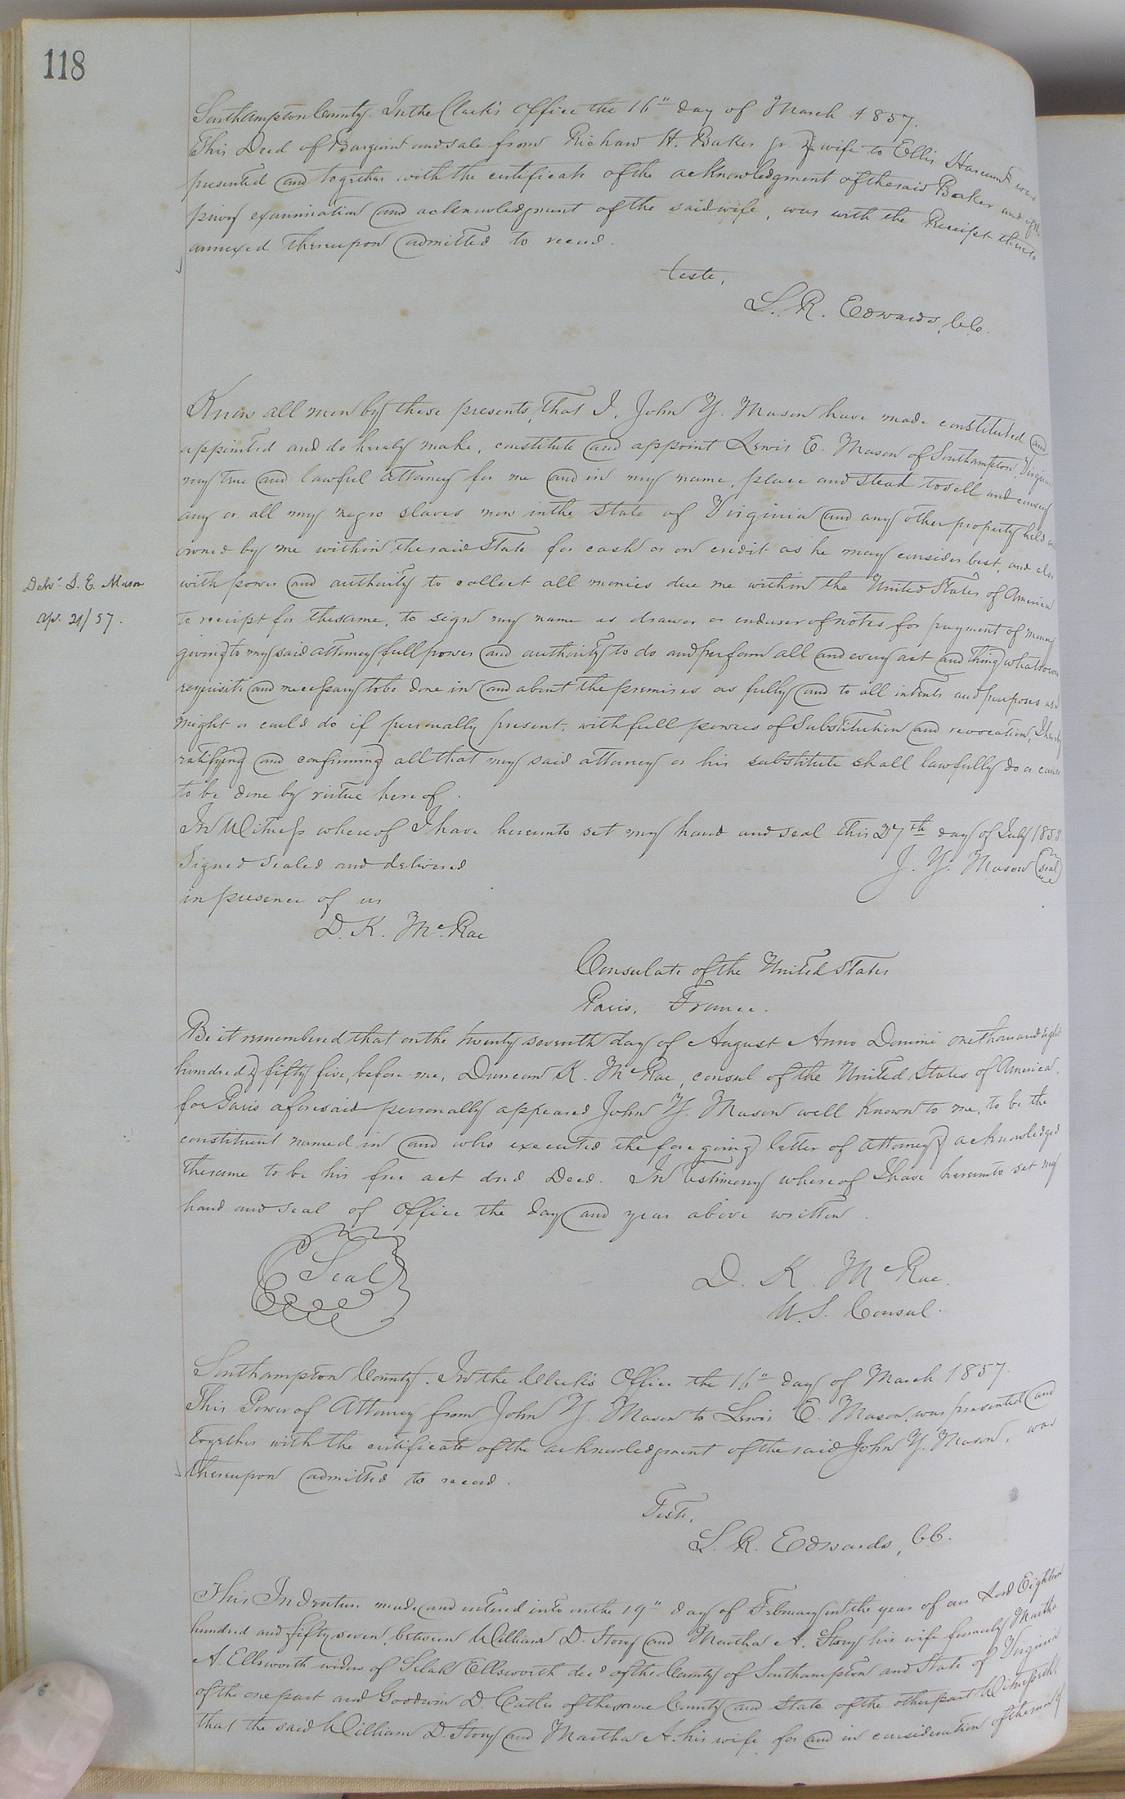 118
Southampton County. In the Clerk's Office the 16" day of March 1857.
This Deed of Bargain and sale from Richard H. Baker jr & wife to Ellis was
presented and together with the certificate of the acknowledgment of the said Baker and of the
privy examination and acknowledgment of the said wife, was with the Receipt thereto
annexed thereupon admitted to record.
teste,
L. R. Edwards, C.C.
Know all men by these presents, that I, John Y. Mason have made constituted and
appointed and do hereby make, constitute and appoint Lewis E. Mason of Southampton, Virginia
my true and lawful attorney for me and in my name, place and stead to sell and convey
any or all my negro slaves now in the State of Virginia and any other property held or
owned by me within the said State for cash or on credit as he may consider best, and also
with power and authority to collect all monies due me within the United States of America
to receipt for the same, to sign my name as drawer or endorser of notes for payment of money
giving to my said attorney full power and authority to do and perform all and every act and thing whatsoever
requisite and necessary to be done in and about the premises as fully and to all intents and purposes as I
might or could do if personally present, with full powers of Substitution and revocation, hereby
ratifying and confirming all that my said attorney or his substitute shall lawfully do or cause
to be done by virtue hereof.
In Witness whereof I have hereunto set my hand and seal this 27th day of July 185
J. Y. Mason (seal)
Signed Sealed and delivered
in presence of us
D. K. McRae
Delv'd L. E. Mason
Ap. 21/57.
Consulate of the United States
Paris, France.
Be it remembered that on the twenty seventh day of August Anno Domini one thousand eight
hundred & fifty five, before me, Duncan K. McRae, consul of the United States of America,
for Paris aforesaid personally appeared John Y. Mason well known to me, to be the
constituent named in and who executed the foregoing letter of attorney & acknowledged
the same to be his free act and Deed. In testimony whereof I have hereunto set my
hand and seal of office the day and year above written.
Seal
D. K. McRae.
U.S. Consul.
Southampton County. In the Clerk's Office the 16" day of March 1857.
This Power of Attorney from John Y. Mason to Lewis E. Mason, was presented and
together with the certificate of the acknowledgment of the said John Y. Mason, was
thereupon admitted to record.
Teste,
L. R. Edwards, C.C.
This Indenture made and entered into on the 19" day of February in the year of our Lord Eighteen
hundred and fifty seven, between William D. Story and Martha A. Story his wife formerly Martha
A. Ellsworth widow of Selah Ellsworth dec'd of the County of Southampton and State of Virginia
of the one part and Goodwin D. of the same County and State of the other part Witnesseth:
that the said William D. Story and Martha A. his wife, for and in consideration of the sum of